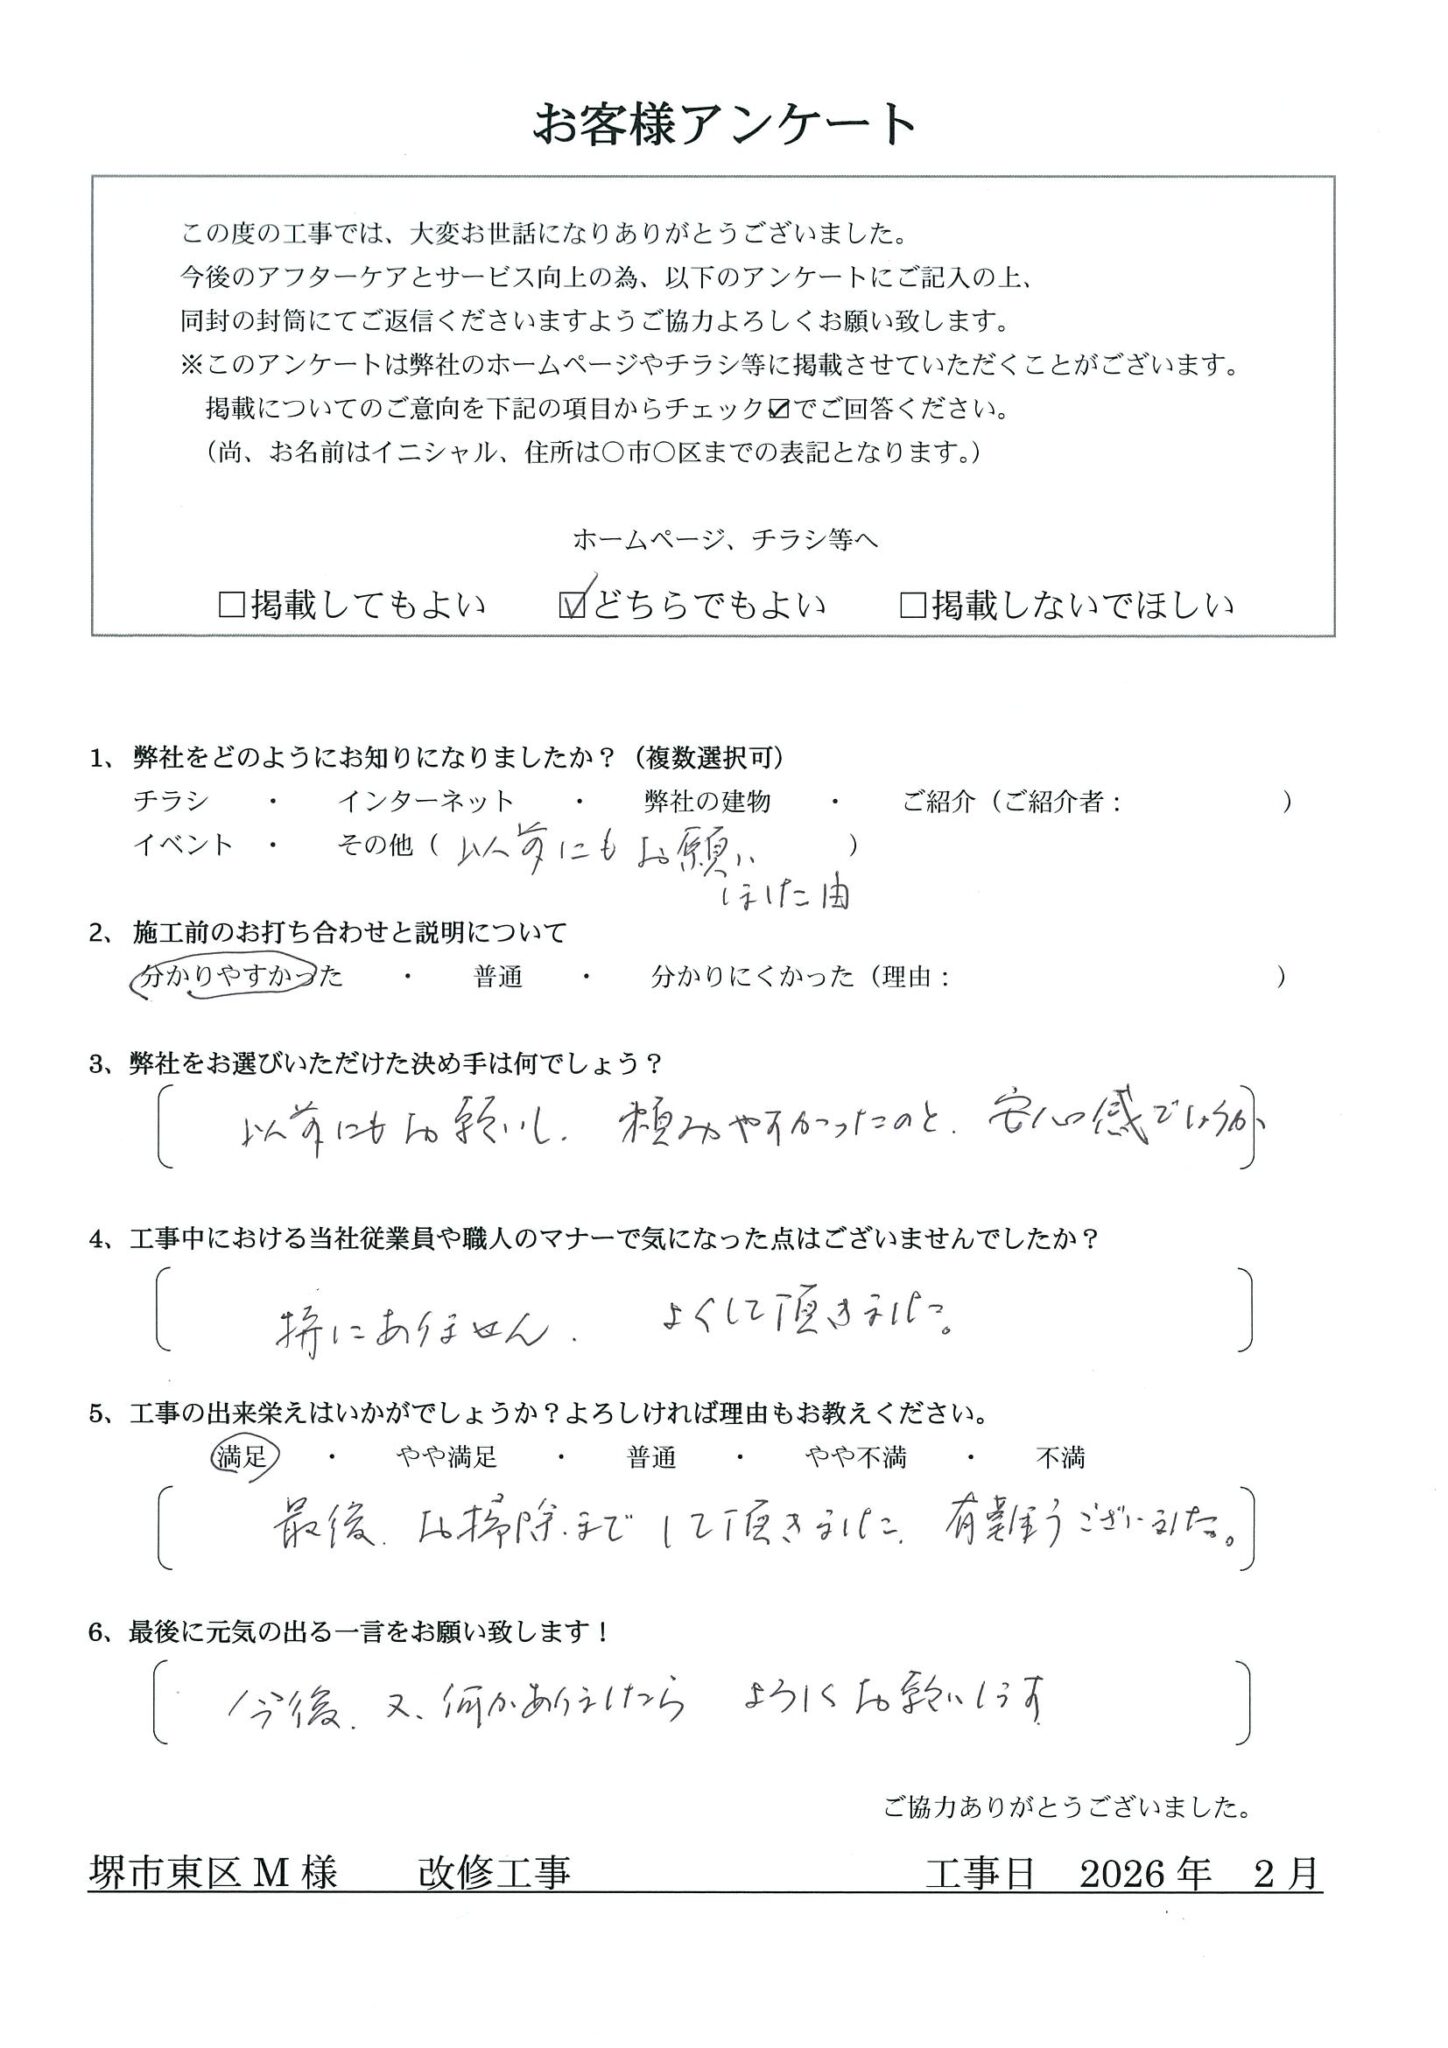 お客様アンケート
この度の工事では、大変お世話になりありがとうございました。
今後のアフターケアとサービス向上の為、以下のアンケートにご記入の上、
同封の封筒にてご返信くださいますようご協力よろしくお願い致します。
※このアンケートは弊社のホームページやチラシ等に掲載させていただくことがございます。
掲載についてのご意向を下記の項目からチェック☑でご回答ください。
（尚、お名前はイニシャル、住所は〇市〇区までの表記となります。）
ホームページ、チラシ等へ
□掲載してもよい ☑どちらでもよい □掲載しないでほしい
1、弊社をどのようにお知りになりましたか？（複数選択可）
チラシ ・ インターネット ・ 弊社の建物 ・ ご紹介（ご紹介者： ）
イベント ・ その他（ 以前にもお願い ）
ました由
2、施工前のお打ち合わせと説明について
分かりやすかった ・ 普通 ・ 分かりにくかった（理由： ）
3、弊社をお選びいただけた決め手は何でしょう？
以前にもお願いし、頼みやすかったのと、安心感でしょうか
4、工事中における当社従業員や職人のマナーで気になった点はございませんでしたか？
特にありません、よくして頂きました。
5、工事の出来栄えはいかがでしょうか？よろしければ理由もお教えください。
満足 ・ やや満足 ・ 普通 ・ やや不満 ・ 不満
最後、お掃除までして頂きました、有難うございました。
6、最後に元気の出る一言をお願い致します！
今後、又、何かありましたら よろしくお願いします
ご協力ありがとうございました。
堺市東区 M 様 改修工事 工事日 2026 年 2 月